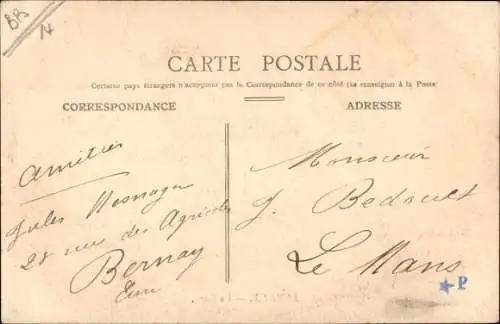 BB
14
CARTE POSTALE
Certains pays étrangers n'acceptent pas la Correspondance de ce côté (se renseigner à la Poste
CORRESPONDANCE
ADRESSE
Amitiés
Jules Mesnager
28 rue des Agricoles
Bernay
Eure
Monsieur
J. Bedouet
Le Mans
P